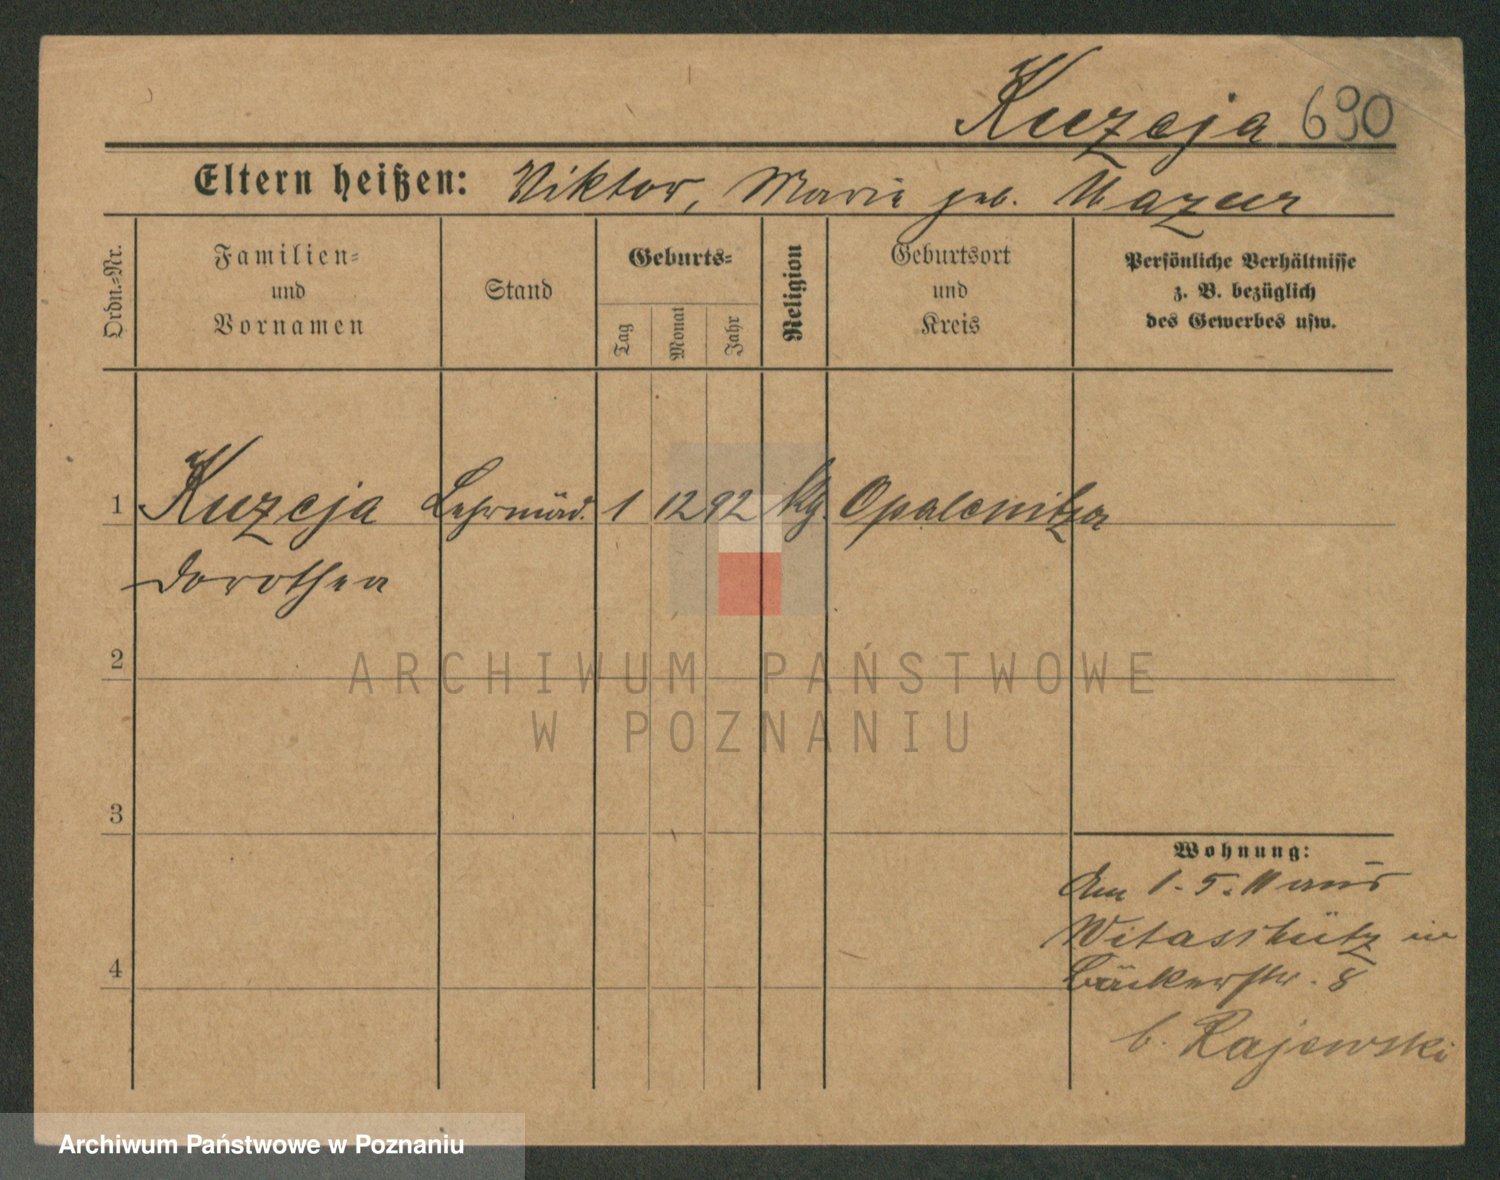 Kuzeja 690
Eltern heißen: Viktor, Marie geb. Mazur
Ordn.=Nr.
Familien=
und
Vornamen
Stand
Geburts=
Tag
Monat
Jahr
Religion
Geburtsort
und
Kreis
Persönliche Verhältnisse
z. B. bezüglich
des Gewerbes usw.
1 Kuzeja Lehrmäd. 1 12 92 kg. Opalenitza
Dorothea
2
3
4
Wohnung:
Am 1.5.11 aus
Witaschütz in
Bäckerstr. 8
b. Rajewski
ARCHIWUM PAŃSTWOWE
W POZNANIU
Archiwum Państwowe w Poznaniu